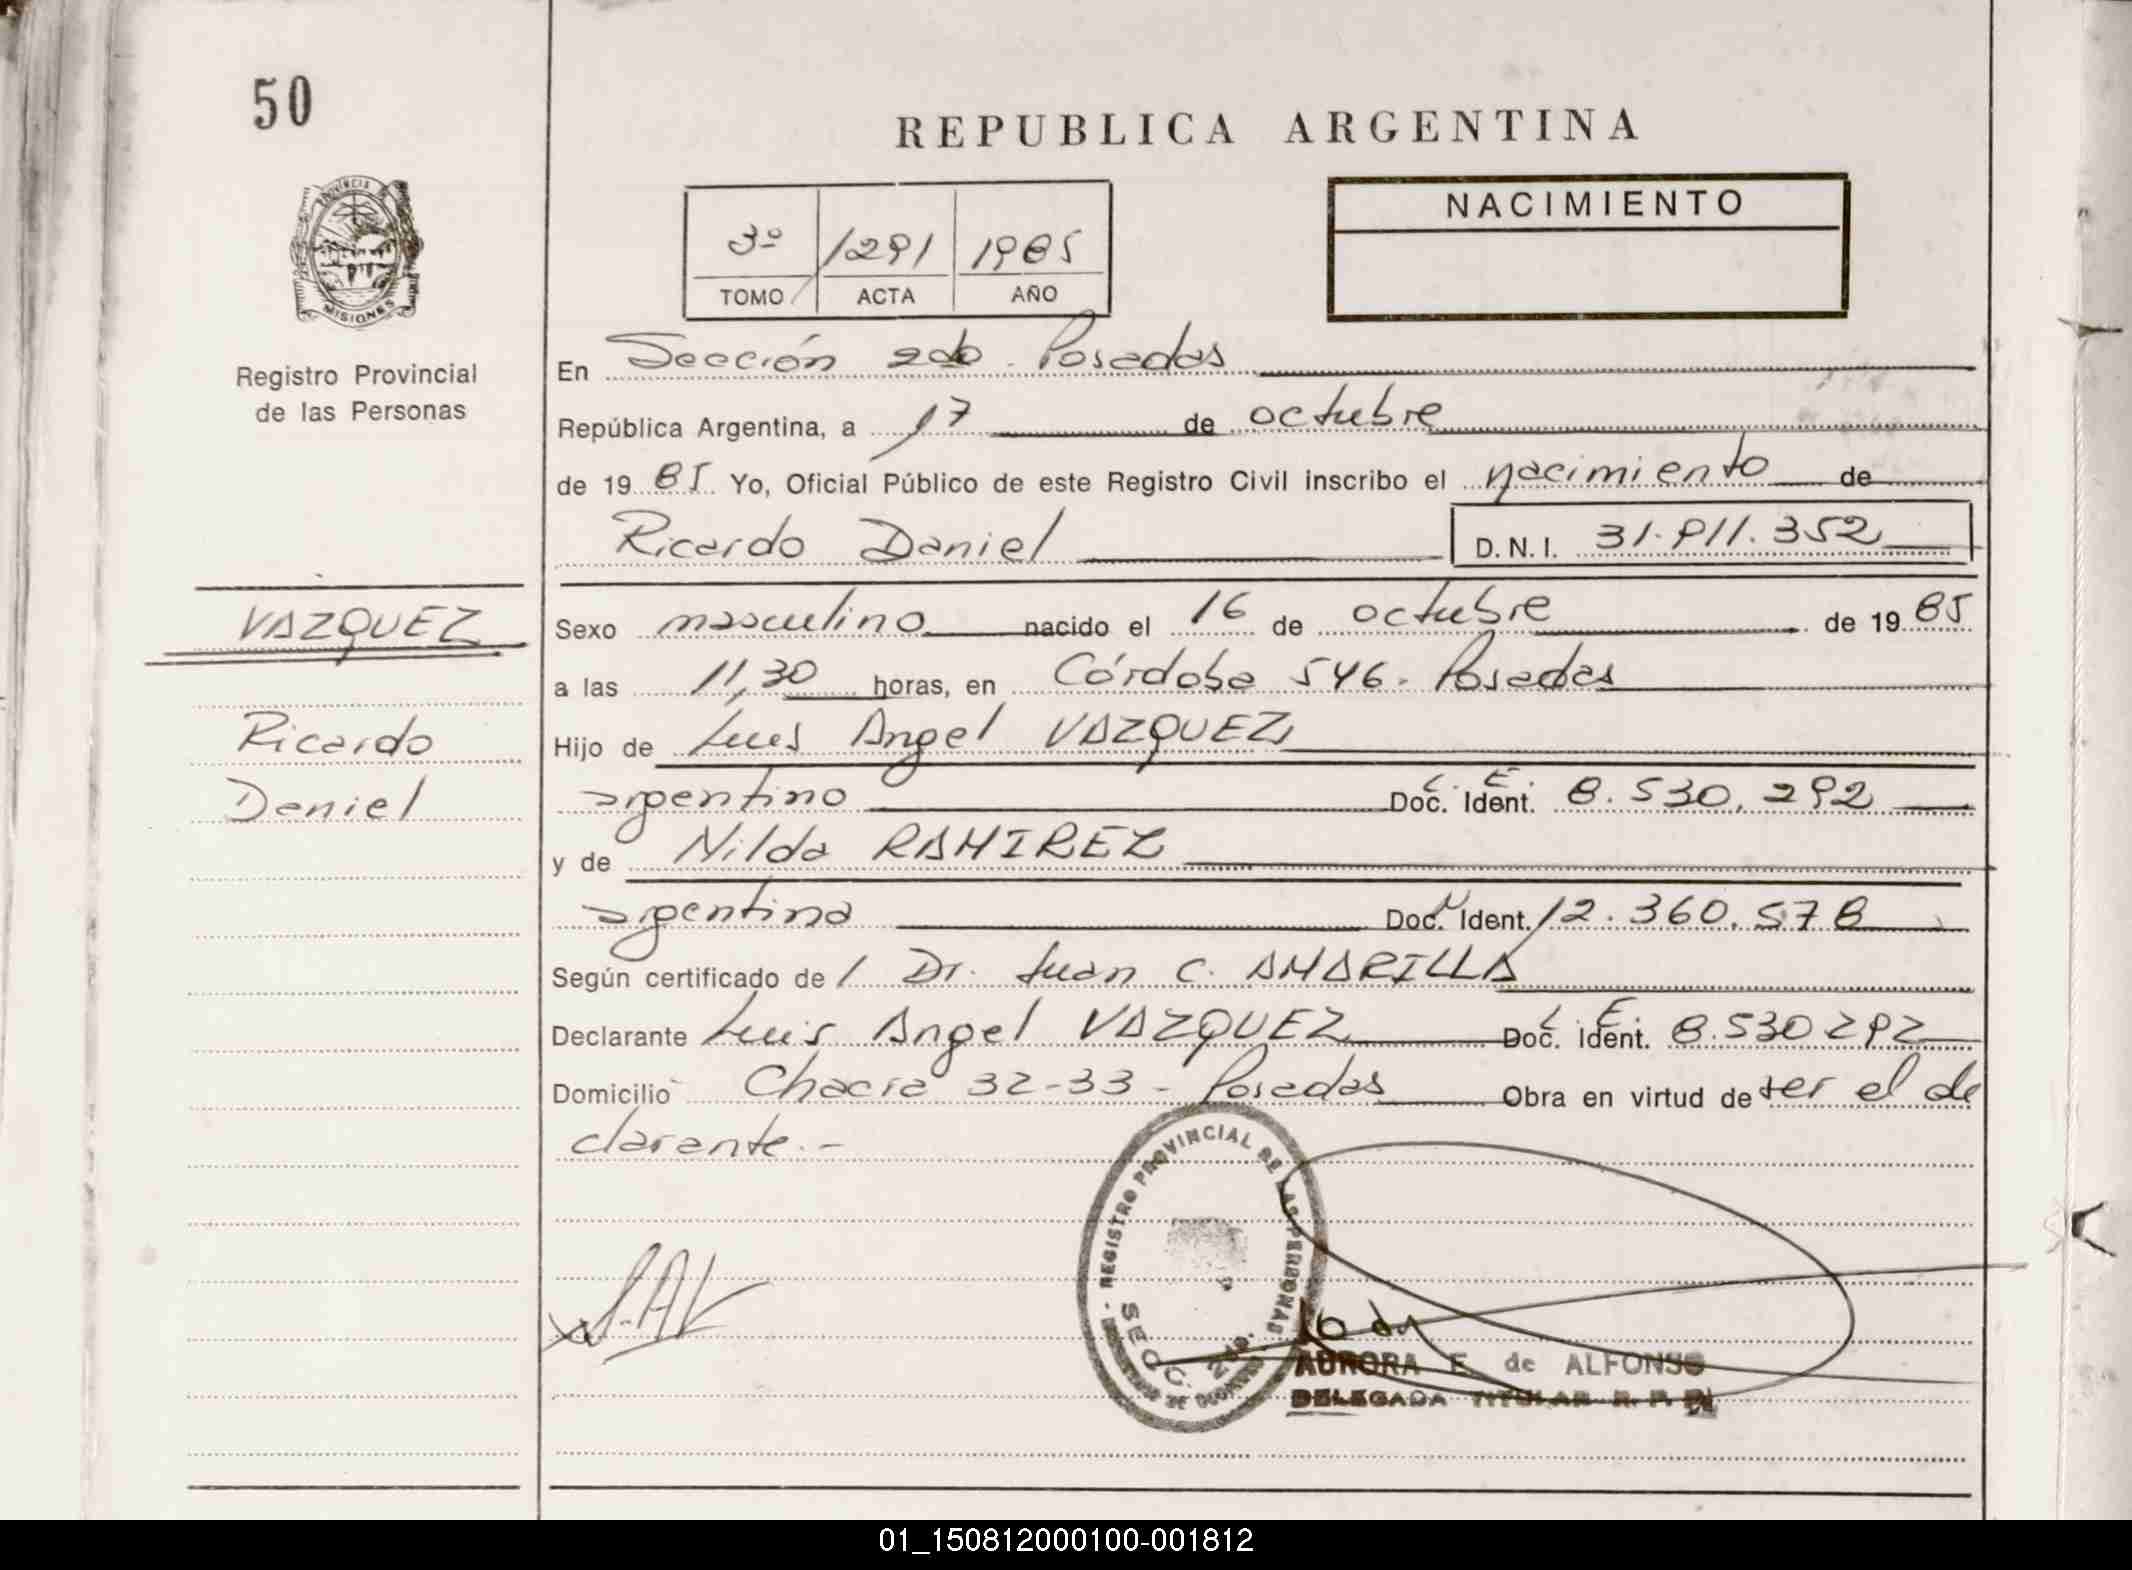 50
REPUBLICA ARGENTINA
PROVINCIA DE
MISIONES
Registro Provincial
de las Personas
3º 1291 1985
TOMO ACTA AÑO
NACIMIENTO
En Sección 2da. Posadas
República Argentina, a 17 de octubre
de 1985 Yo, Oficial Público de este Registro Civil inscribo el nacimiento de
Ricardo Daniel D.N.I. 31.811.352
VAZQUEZ
Ricardo
Daniel
Sexo masculino nacido el 16 de octubre de 1985
a las 11,30 horas, en Córdoba 546. Posadas
Hijo de Luis Angel VAZQUEZ
argentino L. E. Doc. Ident. 8.530.292
y de Nilda RAMIREZ
argentina Doc. Ident. 12.360.578
Según certificado de / Dr. Juan C. AMARILLA
Declarante Luis Angel VAZQUEZ L. E. Doc. Ident. 8.530292
Domicilio Chacra 32-33 - Posadas Obra en virtud de ser el de
clarante.-
REGISTRO PROVINCIAL DE LAS PERSONAS
SECC. 2da.
L.AV
AURORA E. de ALFONSO
DELEGADA TITULAR R. P. P.
01_150812000100-001812